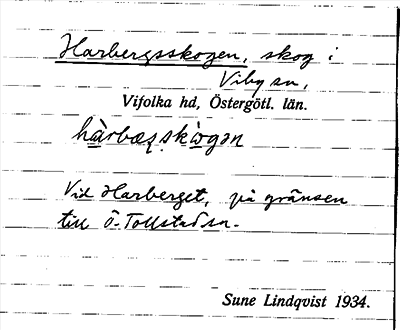 Harbergsskogen, skog i
Viby sn,
Vifolka hd, Östergötl. län.
hàrbær̥skògən
Vid Harberget, på gränsen
till Ö. Tollstad sn.
Sune Lindqvist 1934.